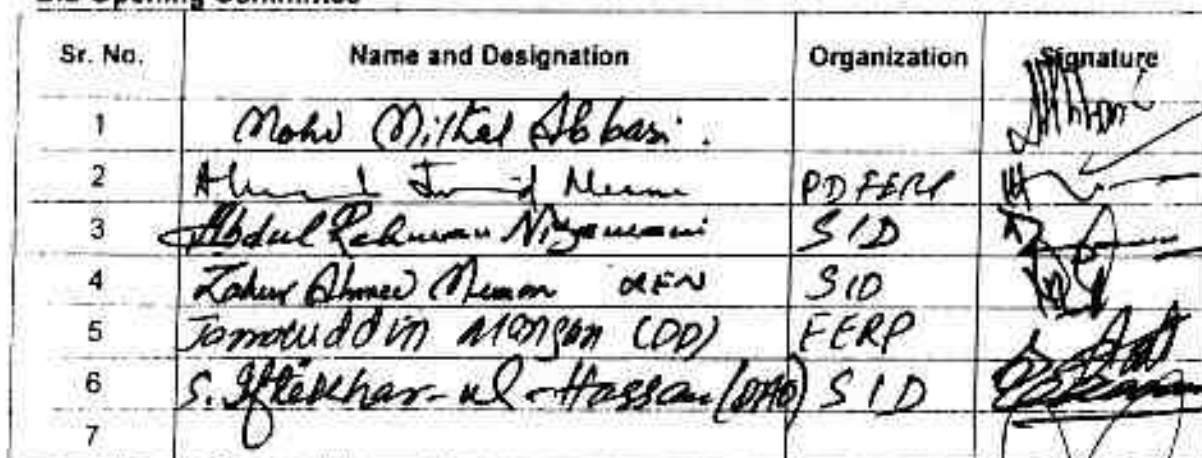 Bid Opening Committee
Sr. No. Name and Designation Organization Signature
1 Mohd Abbasi.
2 PD FERP
3 Abdul Rehman Nizamani SID
4 Zahur Ahmed Memon XEN SID
5 Jamaluddin Mangan (DD) FERP
6 S. Iftekhar-ul-Hassan (DAO) SID
7